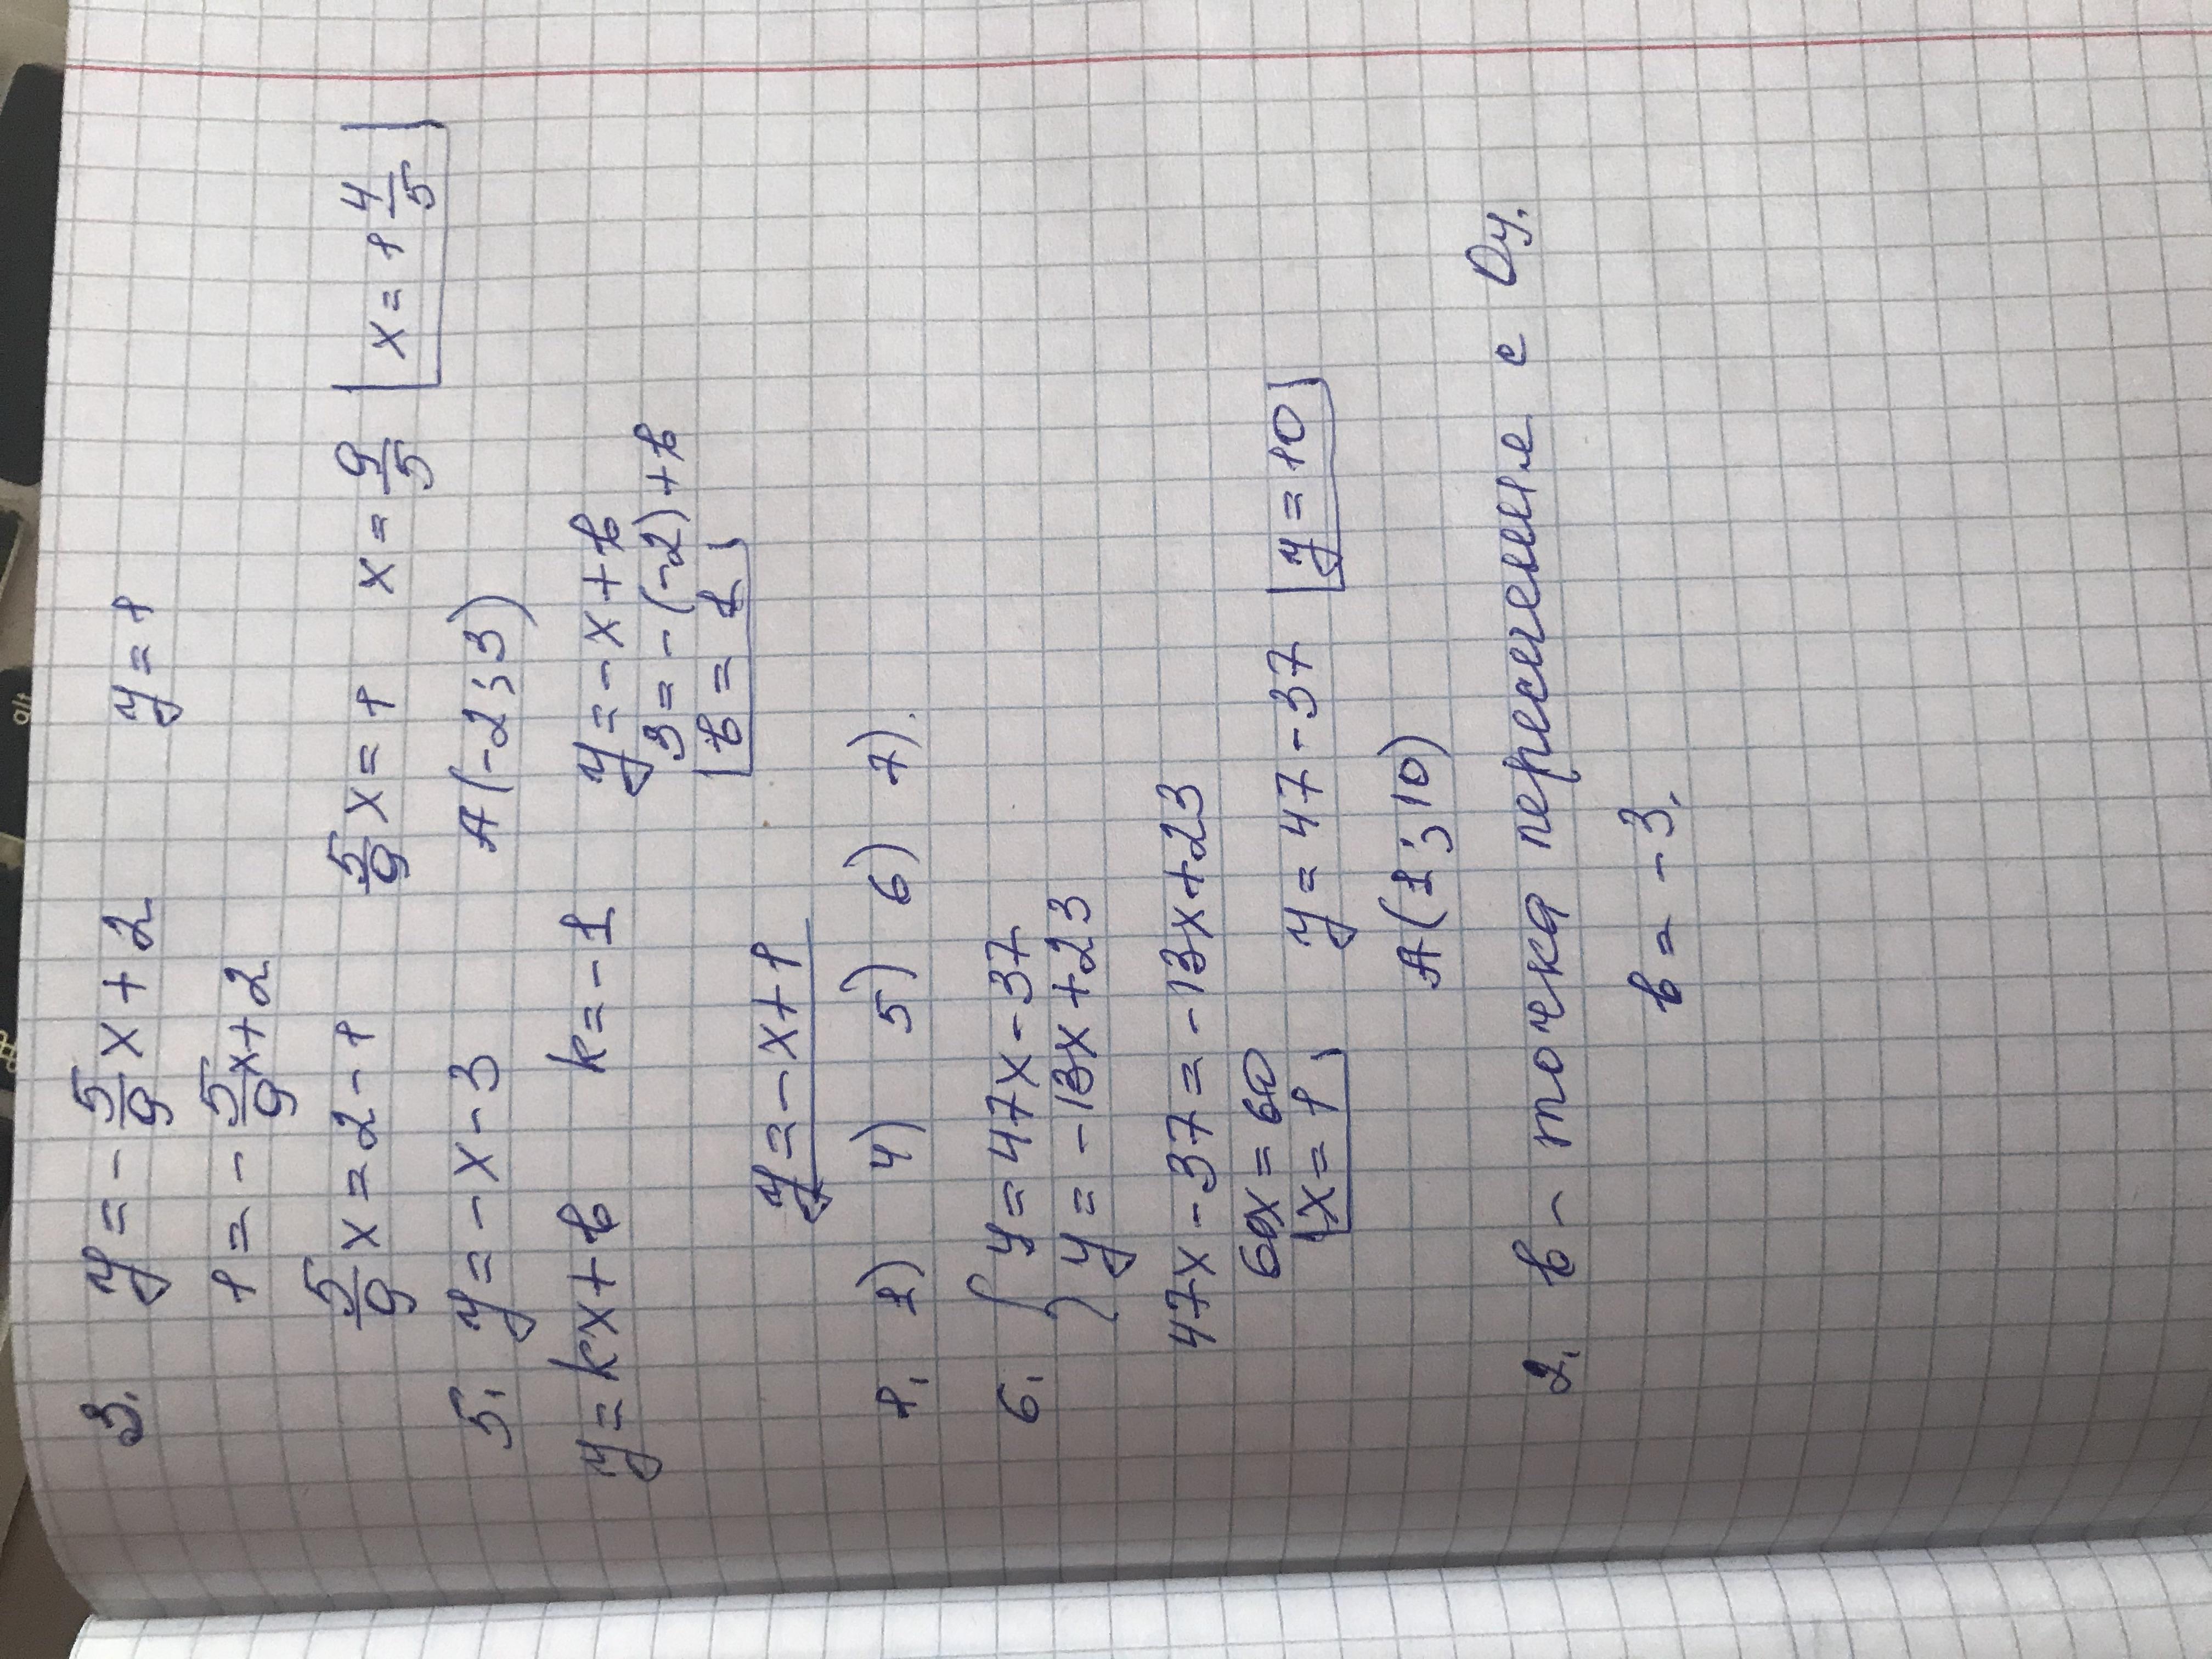 3. y = -5/9 x + 2 y = 1
1 = -5/9 x + 2
5/9 x = 2 - 1 5/9 x = 1 x = 9/5 x = 1 4/5
5. y = -x - 3 A(-2; 3)
y = kx + b k = -1 y = -x + b
3 = -(-2) + b
b = 1
y = -x + 1
1. 2) 4) 5) 6) 7).
6. { y = 47x - 37
y = -13x + 23
47x - 37 = -13x + 23
60x = 60 y = 47 - 37 y = 10
x = 1
A(1; 10)
2. b - точка пересечение с Oy.
b = -3.